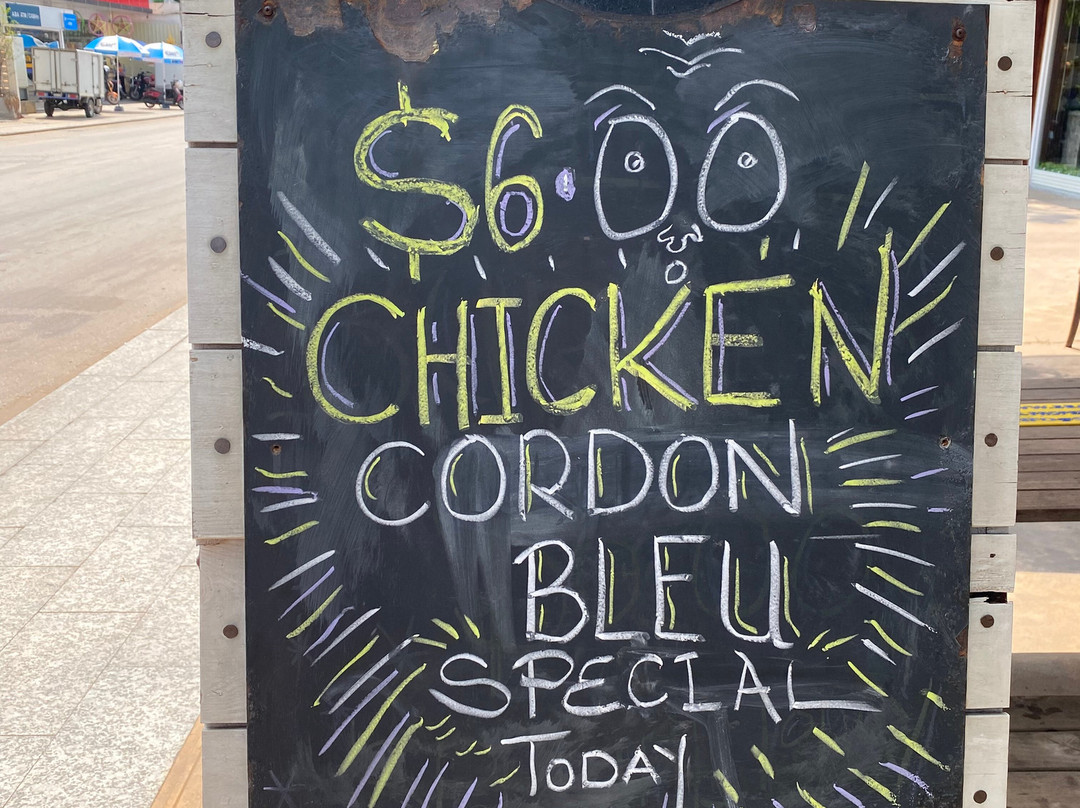 $6.00
CHICKEN
CORDON
BLEU
SPECIAL
TODAY